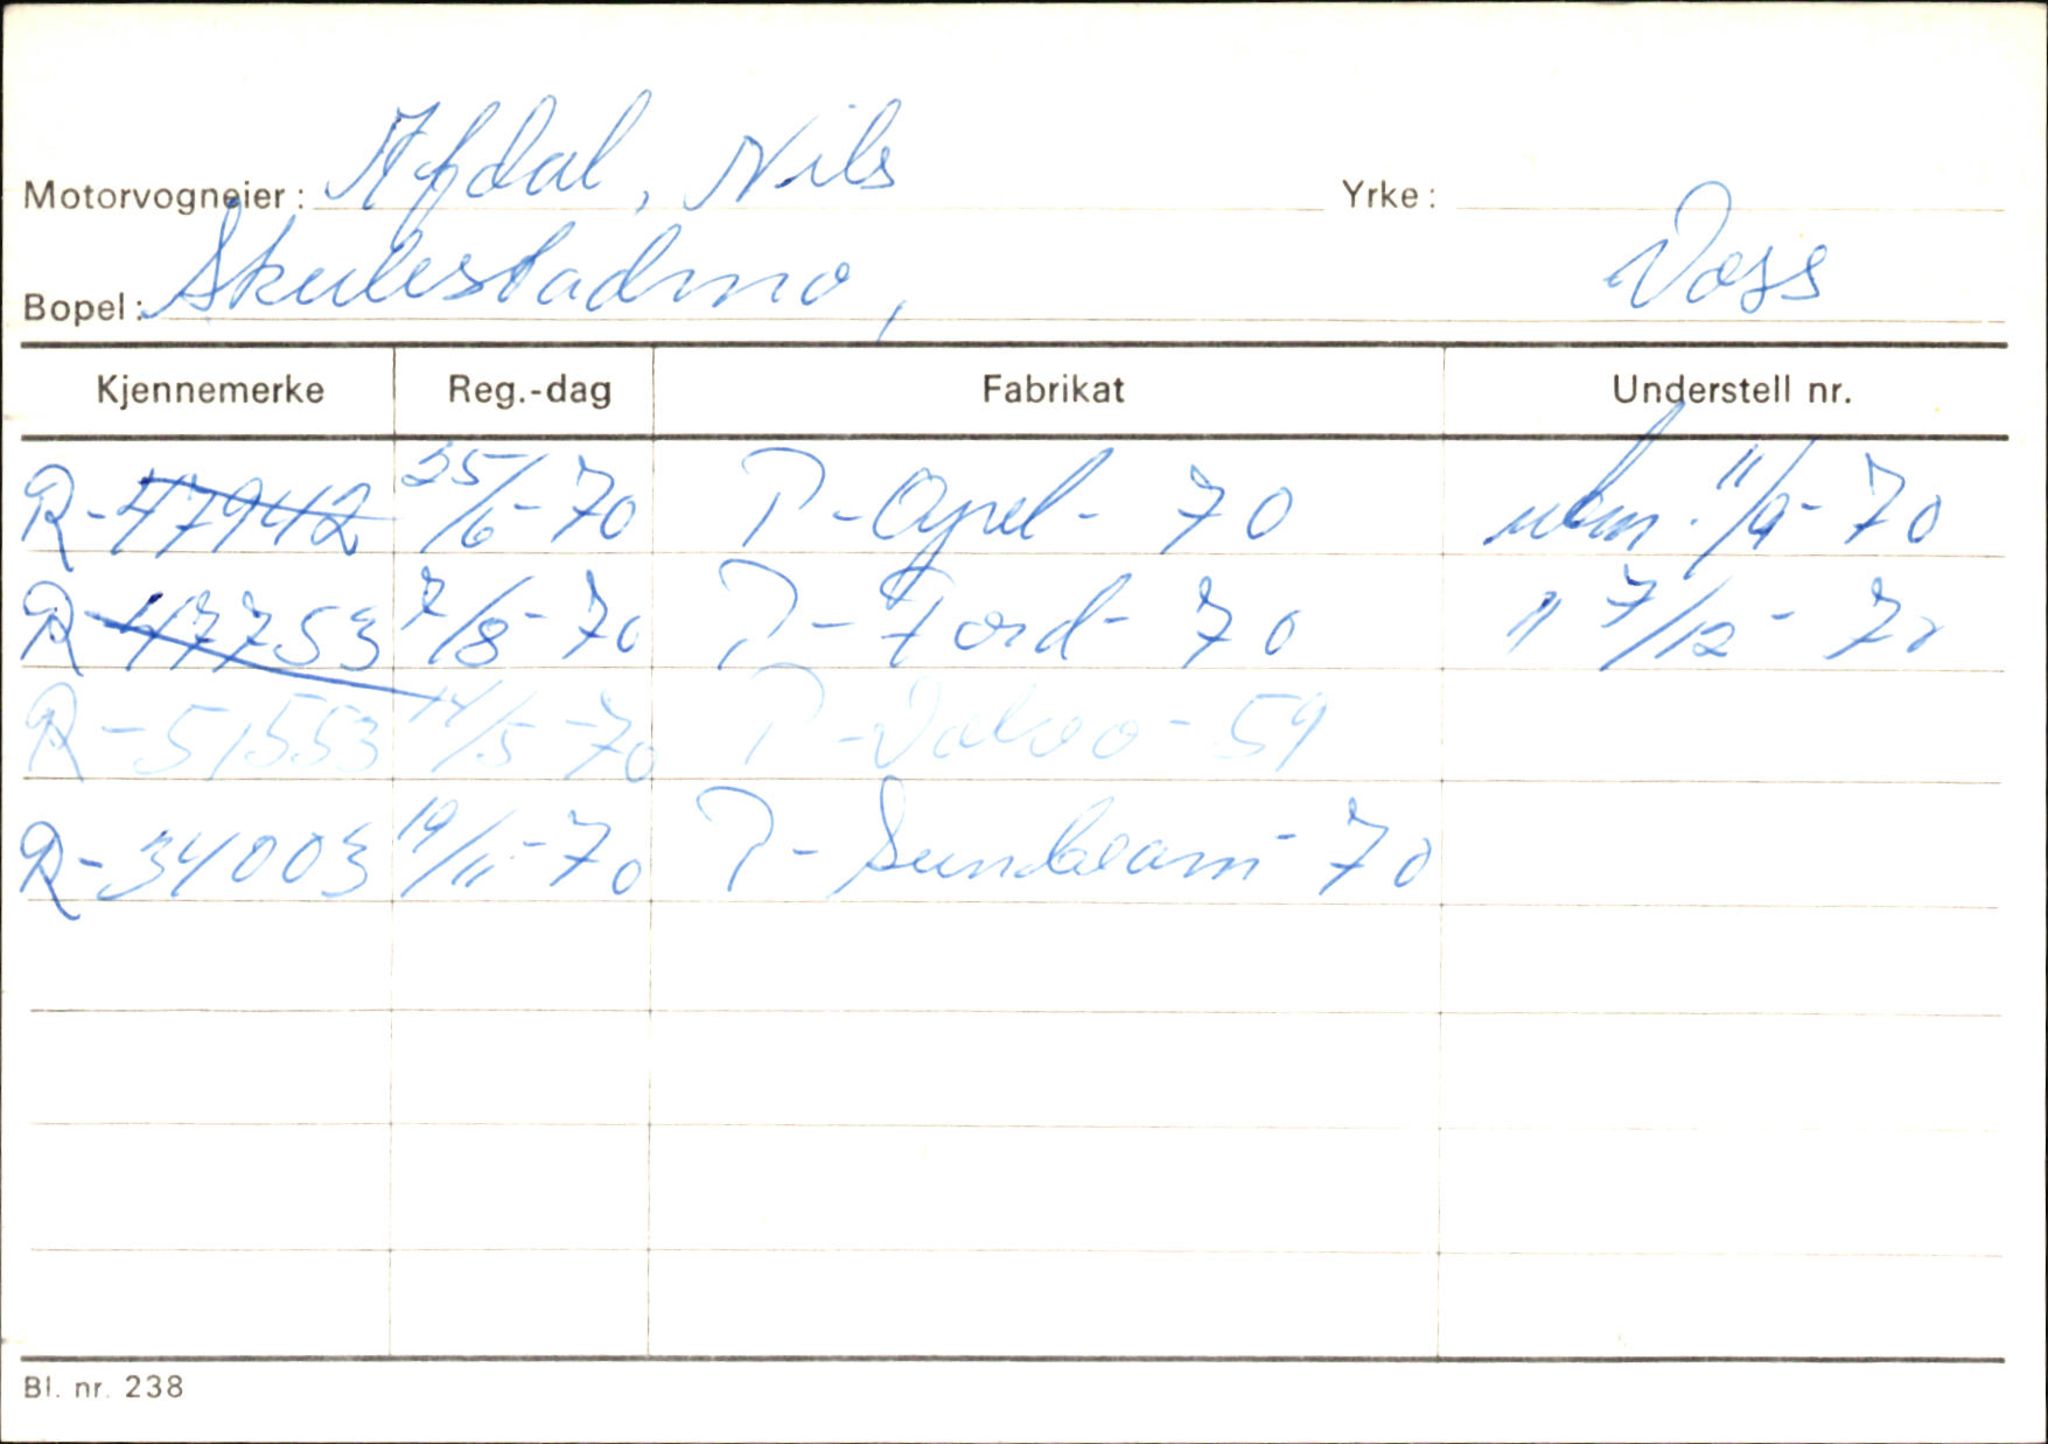 Motorvogneier: Afdal, Nils Yrke:
Bopel: Skulestadmo, Voss
Kjennemerke Reg.-dag Fabrikat Understell nr.
R-47942 25/6-70 P-Opel-70 11/9-70
R-47753 7/8-70 P-Ford-70 " 7/12-70
R-51553 14/5-70 P-Volvo-59
R-34003 19/11-70 P-Sunbeam-70
Bl. nr. 238